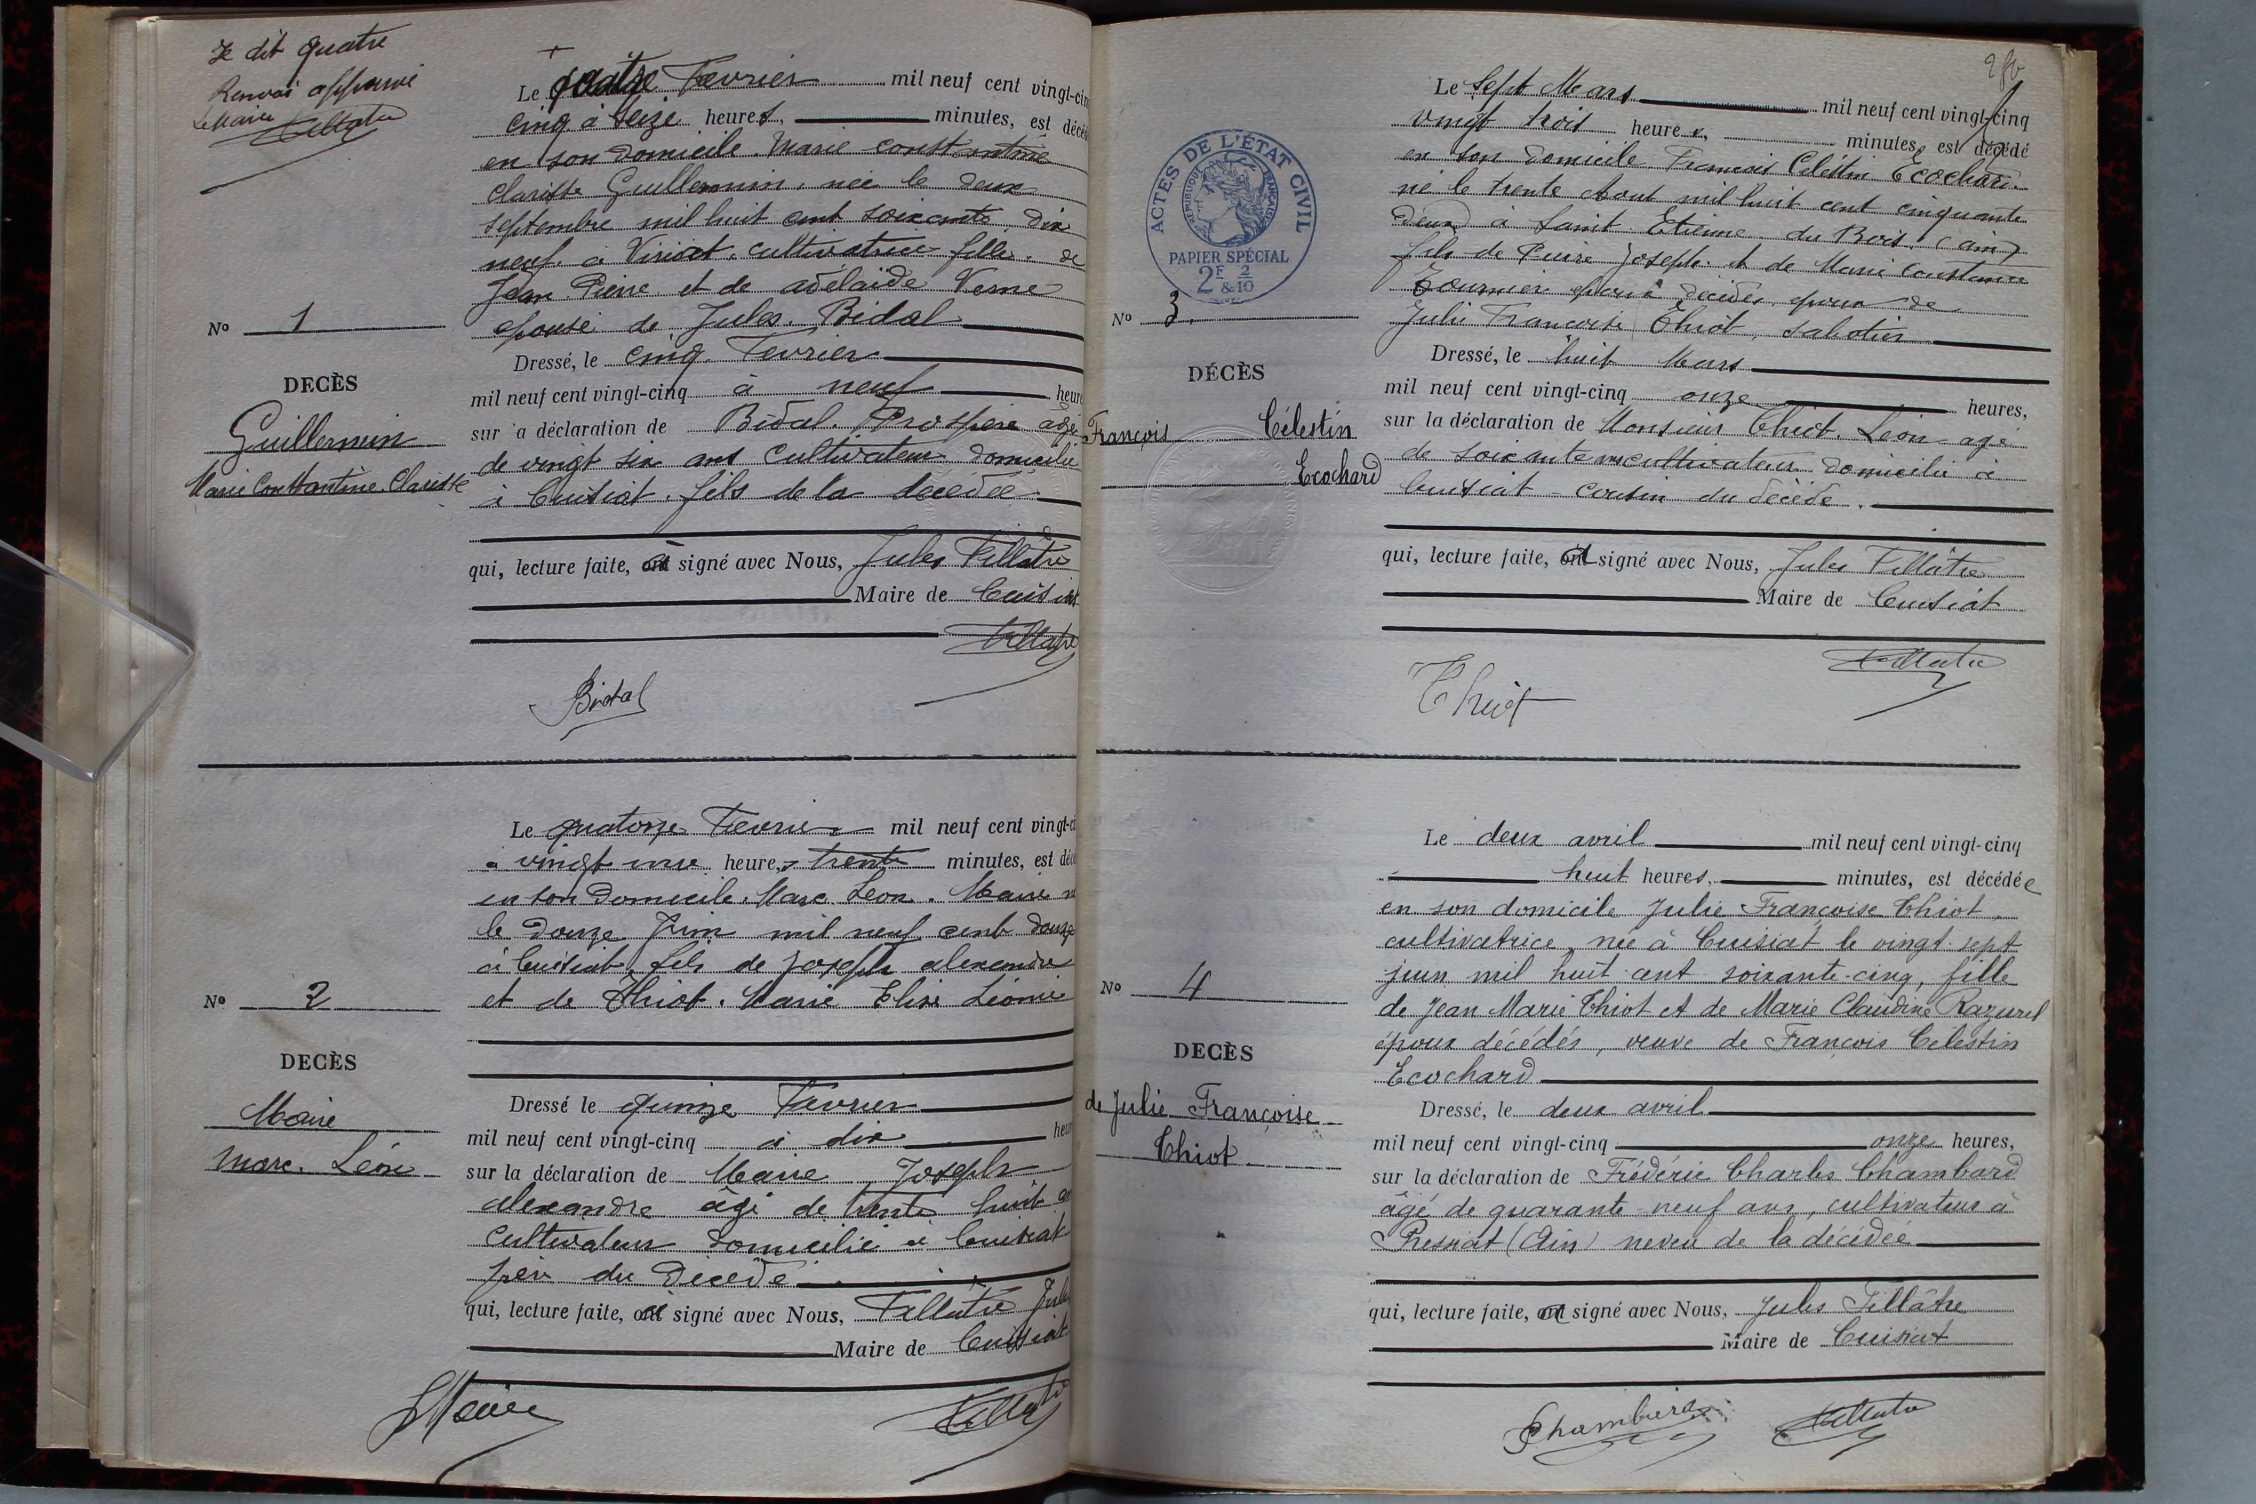 Je dit quatre
Renvoi approuvé
Le Maire
Tillatre
Le quatre Fevrier mil neuf cent vingt-cin
cinq à seize heures, minutes, est décé
en son domicile. Marie constantine
clarisse Guillermin, née le deux
septembre mil huit cent soixante dix
neuf à Viriat, cultivatrice fille de
Jean Pierre et de adélaïde Verne
épouse de Jules Bidal
No 1
DECÈS
Guillermin
Marie Constantine Clarisse
Dressé, le cinq Fevrier
mil neuf cent vingt-cinq à neuf heure
sur a déclaration de Bidal. Prosper âgé
de vingt six ans cultivateur domicilié
à Cuisiat. fils de la décédée
qui, lecture faite, a signé avec Nous, Jules Tillâtre
Maire de Cuisiat
Tillatre
Bidal
Le quatorze Fevrier mil neuf cent vingt-ci
à vingt une heures trente minutes, est déc
en son domicile. Marc Leon. Maire n
le douze Juin mil neuf cent douze
à Cuisiat, fils de Joseph alexandre
et de Thiot. Marie Elise Léonie
No 2
DECÈS
Maire
Marc. Léon
Dressé le quinze Fevrier
mil neuf cent vingt-cinq à dix heur
sur la déclaration de Maire Joseph
alexandre âgé de trente huit an
cultivateur domicilié à Cuisiat
père du décédé
qui, lecture faite, a signé avec Nous, Tillâtre Jules
Maire de Cuisiat
Maire
Tillatre
Le Sept Mars mil neuf cent vingt-cinq
vingt trois heures, minutes, est décédé
en son domicile François Célestin Ecochard
né le trente Aout mil huit cent cinquante
deux à Saint Etienne du Bois (ain)
fils de Pierre Joseph et de Marie Constance
époux décédés, époux de
Julie Françoise Thiot, sabotier
ACTES DE L'ÉTAT CIVIL
RÉPUBLIQUE FRANÇAISE
PAPIER SPÉCIAL
2F & 2/10
No 3.
DÉCÈS
François Célestin
Ecochard
Dressé, le huit Mars
mil neuf cent vingt-cinq onze heures,
sur la déclaration de Monsieur Thiot. Léon agé
de soixante ans cultivateur domicilié à
Cuisiat - cousin du décédé.
qui, lecture faite, a signé avec Nous, Jules Tillâtre
Maire de Cuisiat
Tillatre
Thiot
Le deux avril mil neuf cent vingt-cinq
huit heures, minutes, est décédée
en son domicile Julie Françoise Thiot,
cultivatrice, née à Cuisiat le vingt sept
juin mil huit cent soixante-cinq, fille
de Jean Marie Thiot et de Marie Claudine Razurel
époux décédés, veuve de François Célestin
Ecochard
No 4
DECÈS
de Julie Françoise
Thiot
Dressé, le deux avril
mil neuf cent vingt-cinq onze heures,
sur la déclaration de Frédéric Charles Chambard
âgé de quarante-neuf ans, cultivateur à
Pressiat (Ain) neveu de la décédée
qui, lecture faite, a signé avec Nous, Jules Tillâtre
Maire de Cuisiat
Chambard
Tillatre